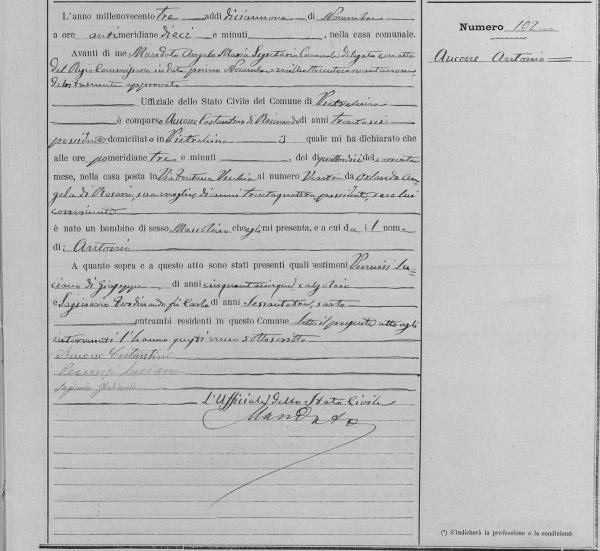 L'anno millenovecento tre addì diciannove di Novembre
a ore antimeridiane dieci e minuti , nella casa comunale.
Avanti di me Mandato Angelo Maria Segretario Comunale delegato con atto
del Regio Commissario in data primo Novembre
debitamente approvato
Uffiziale dello Stato Civile del Comune di Pietrelcina
è comparso Aucone Costantino di Raimondo di anni trentasei
possidente domiciliato in Pietrelcina il quale mi ha dichiarato che
alle ore pomeridiane tre e minuti , del dì quattordici del corrente
mese, nella casa posta in Via Fontana Vecchia al numero Venti da Orlando An-
gela di Rosario, sua moglie, di anni trentaquattro, possidente, seco lui
convivente
è nato un bambino di sesso Mascolino che egli mi presenta, e a cui dà il nome
di: Antonio
A quanto sopra e a questo atto sono stati presenti quali testimoni Lu-
ciano di Giuseppe di anni cinquantacinque, calzolaio
e Saginario Ferdinando fu Carlo di anni Sessantatre, sarto
entrambi residenti in questo Comune Letto il presente atto agli
intervenuti l'hanno questi meco sottoscritto
Aucone Costantino
Luciano
L'Uffiziale dello Stato Civile
Mandato
Numero 102
Aucone Antonio
(*) S'indicherà la professione o la condizione.